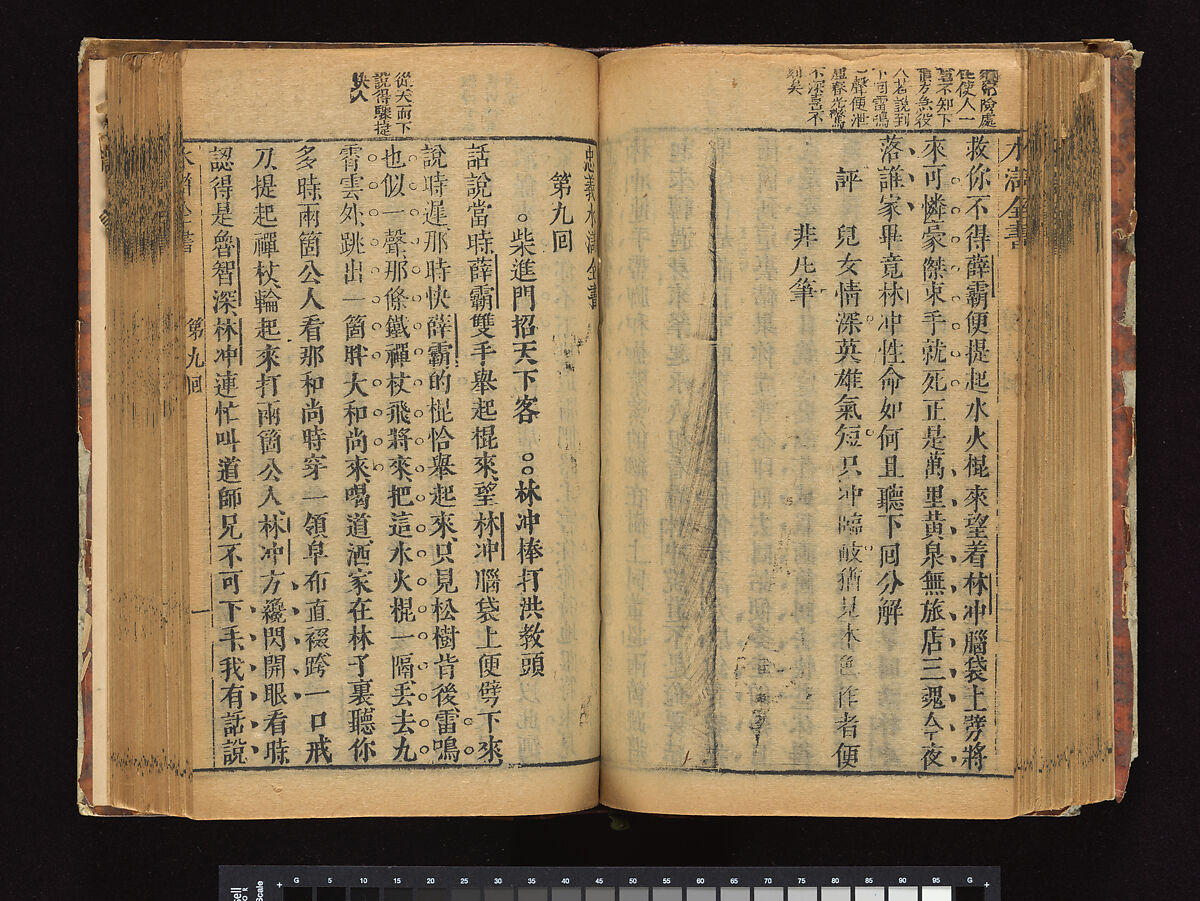 水滸全書
險處
使人一
不知下
說到
下回雷鳴
一聲便泄
不深喜不
刻矣
救你不得薛霸便提起水火棍來望着林冲腦袋上劈將
來可憐豪傑束手就死正是萬里黄泉無旅店三魂今夜
落誰家畢竟林冲性命如何且聽下回分解
評 兒女情深英雄氣短只冲臨岐猶見本色作者便
非凡筆
忠義水滸全書
第九回
柴進門招天下客 林冲棒打洪教頭
從天而下
說得驟捷
快人
話說當時薛霸雙手舉起棍來望林冲腦袋上便劈下來
說時遲那時快薛霸的棍恰舉起來只見松樹背後雷鳴
也似一聲那條鐵禪杖飛將來把這水火棍一隔丟去九
霄雲外跳出一箇胖大和尚來喝道洒家在林子裏聽你
多時兩箇公人看那和尚時穿一領皁布直裰跨一口戒
刀提起禪杖輪起來打兩箇公人林冲方纔閃開眼看時
認得是魯智深林冲連忙叫道師兄不可下手我有話說
第九回
一